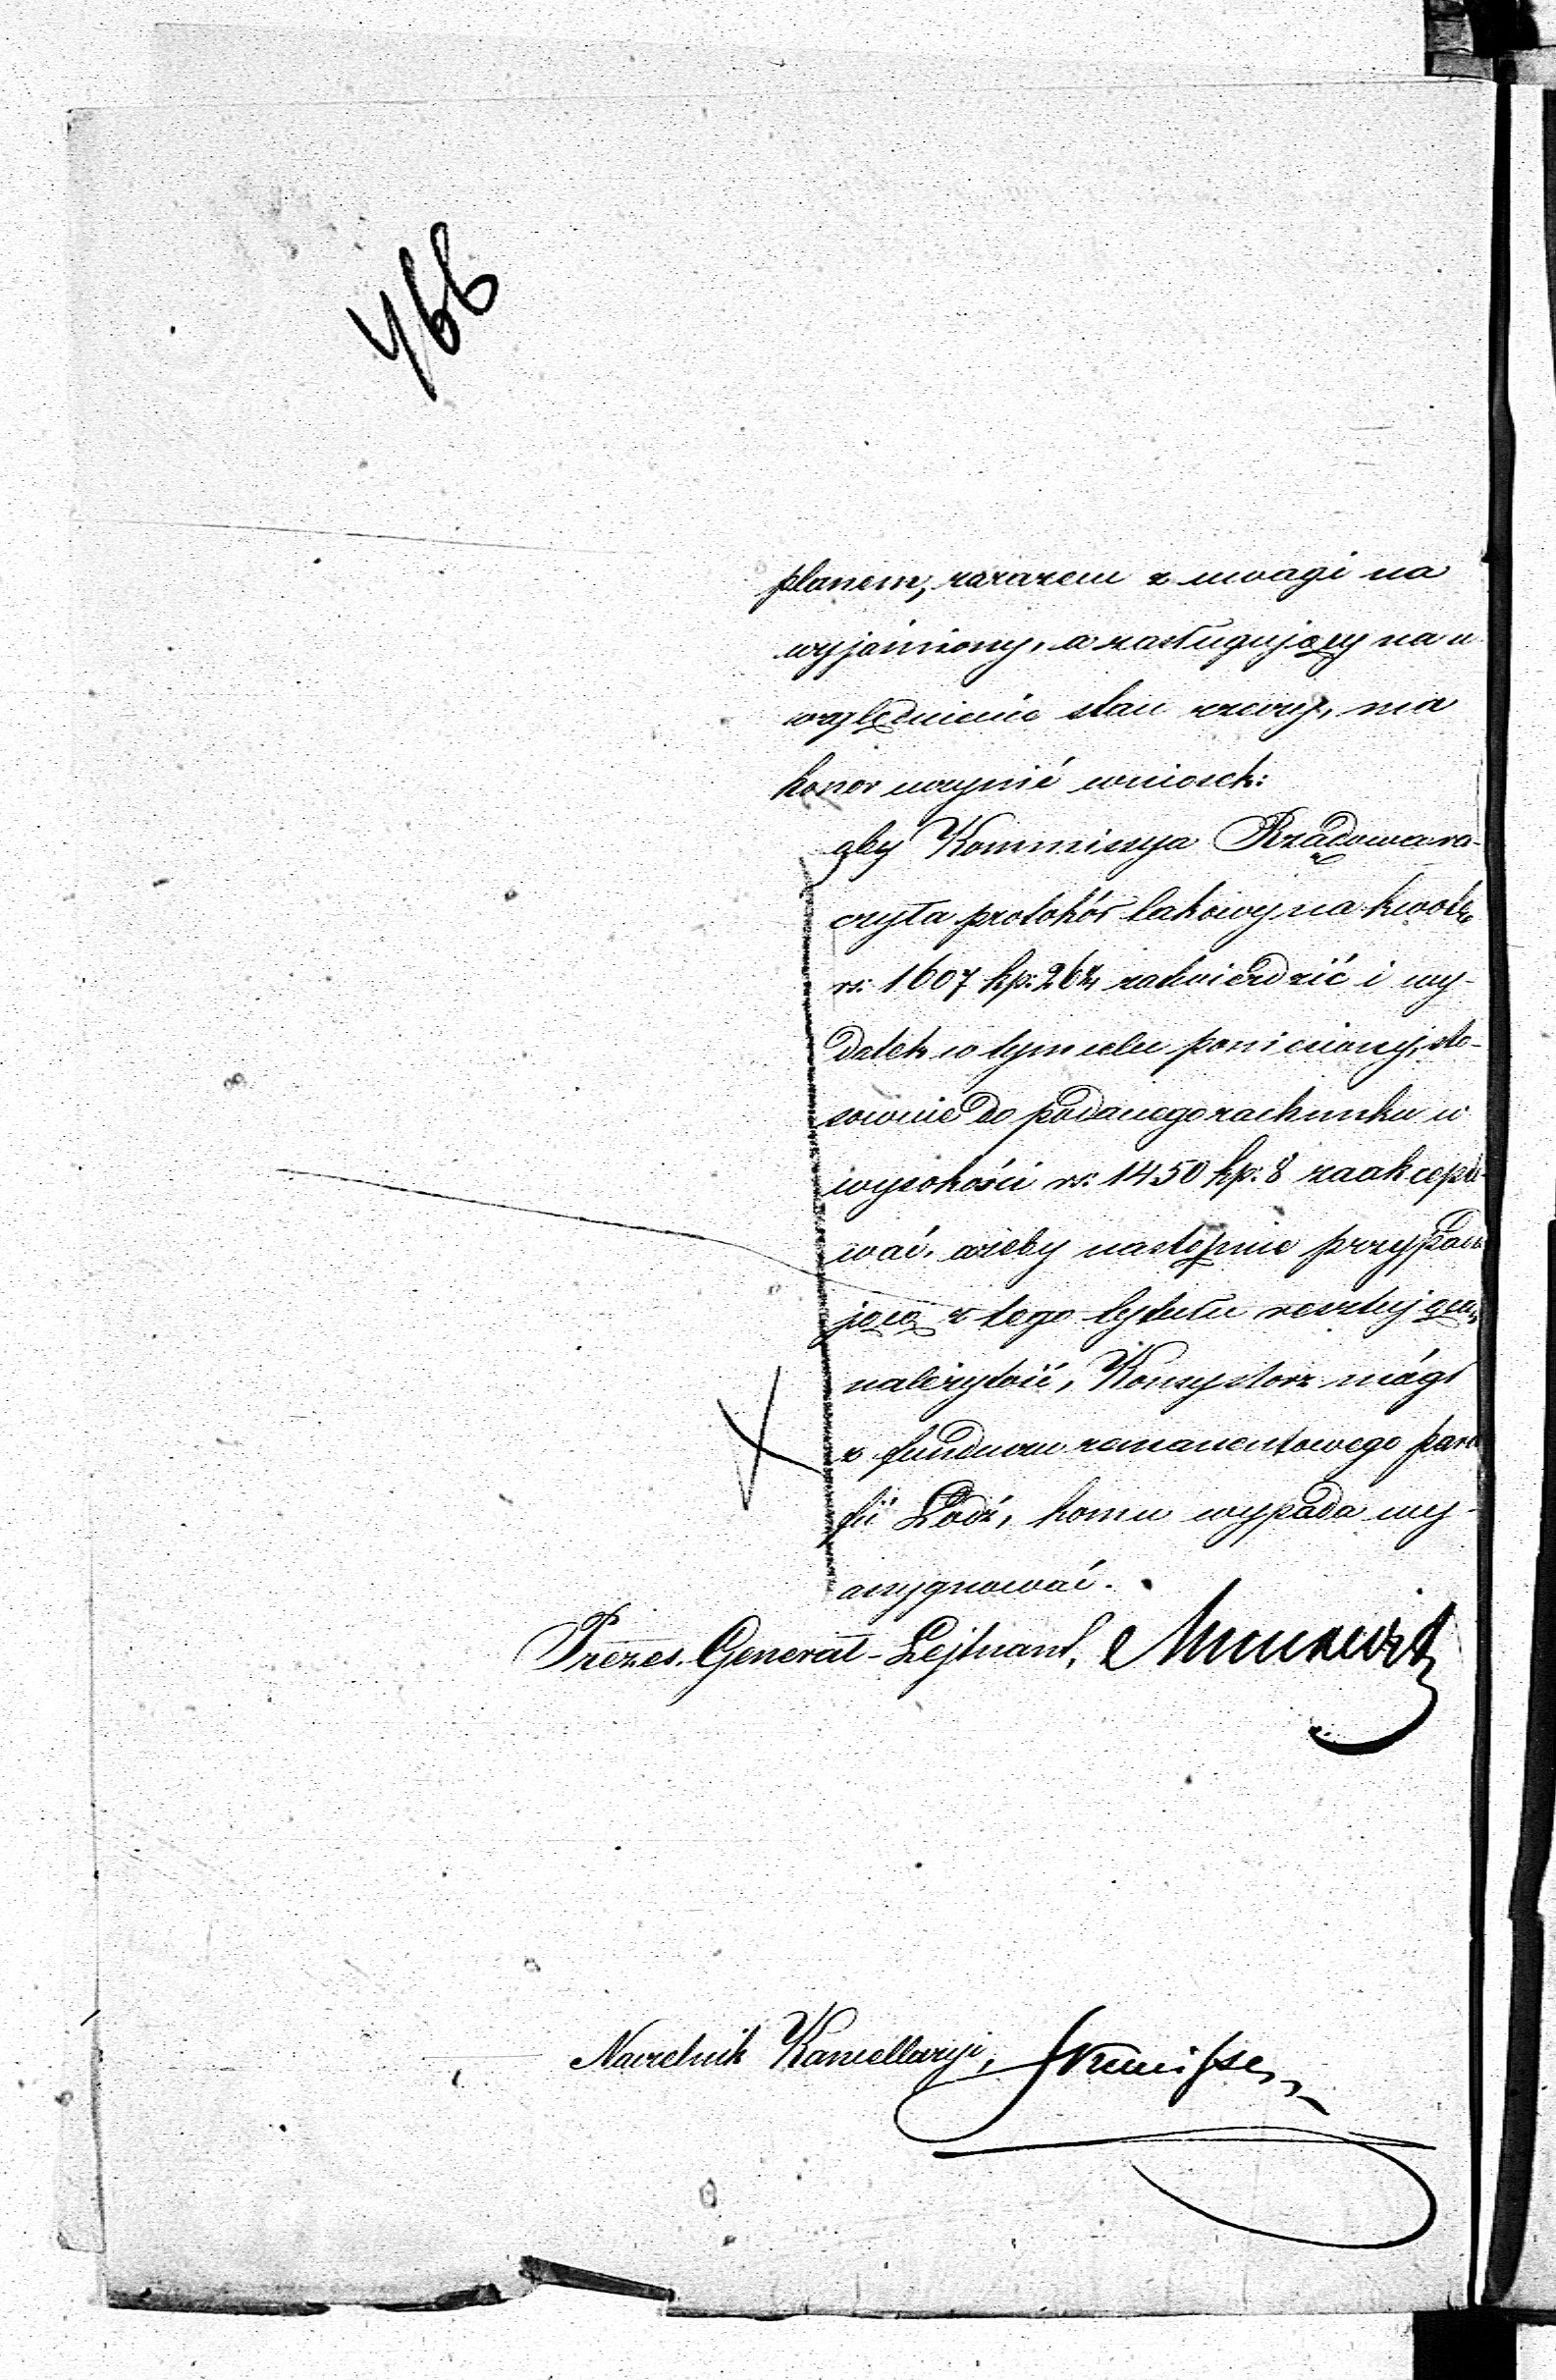 466
planem, zarazem z uwagi na
wyjaśniony, a zasługujący na u
względnienie stan rzeczy, ma
honor uczynić wniosek:
aby Kommissya Rządowa ra-
czyła protokół taxowy na kwotę
rs: 1607 kp: 26½ zatwierdzić i wy-
datek w tym celu poniesiony, sto-
sownie do podanego rachunku w
wysokości rs: 1450 kp: 8 zaakcepto-
wać, ażeby następnie przypada
jącą z tego tytułu resztującą
należytość, Konsystorz mógł
z funduszu remanentowego para
fii Łódź, komu wypada wy-
assygnować.
Prezes, Generał-Lejtnant,
Naczelnik Kancellaryi,